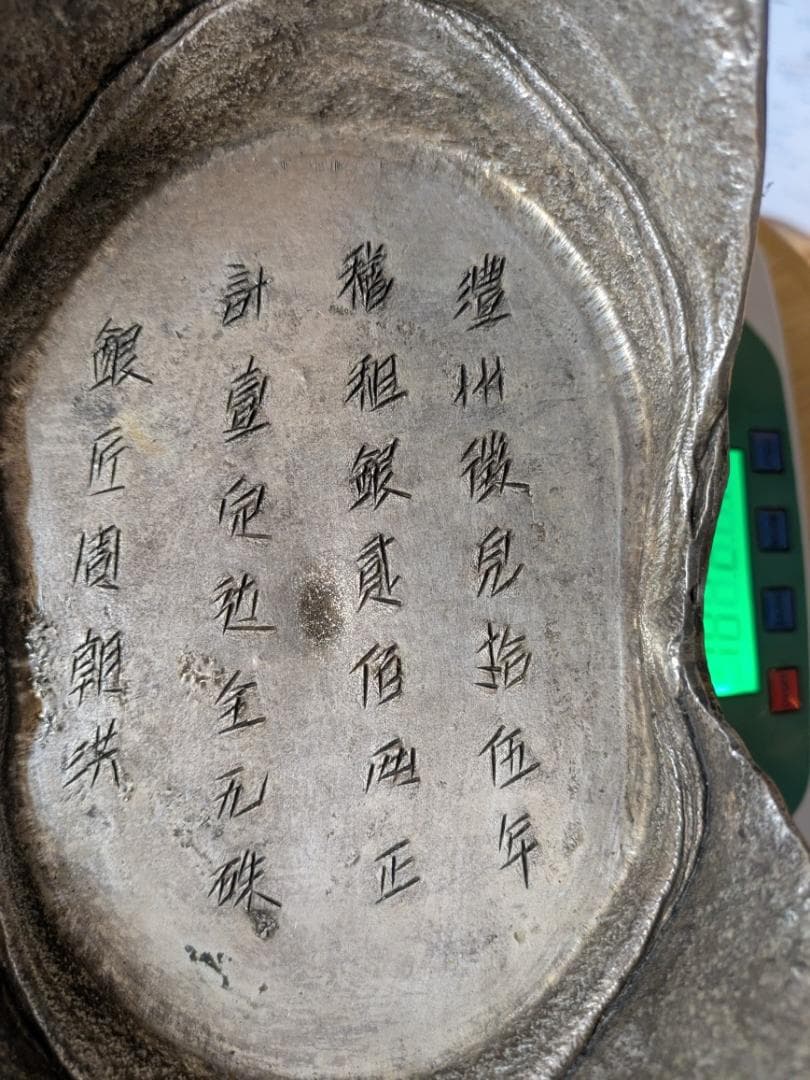 澧州徵見拾伍年
稽租銀貳佰兩正
計壹定边全无硃
銀匠周朝洪